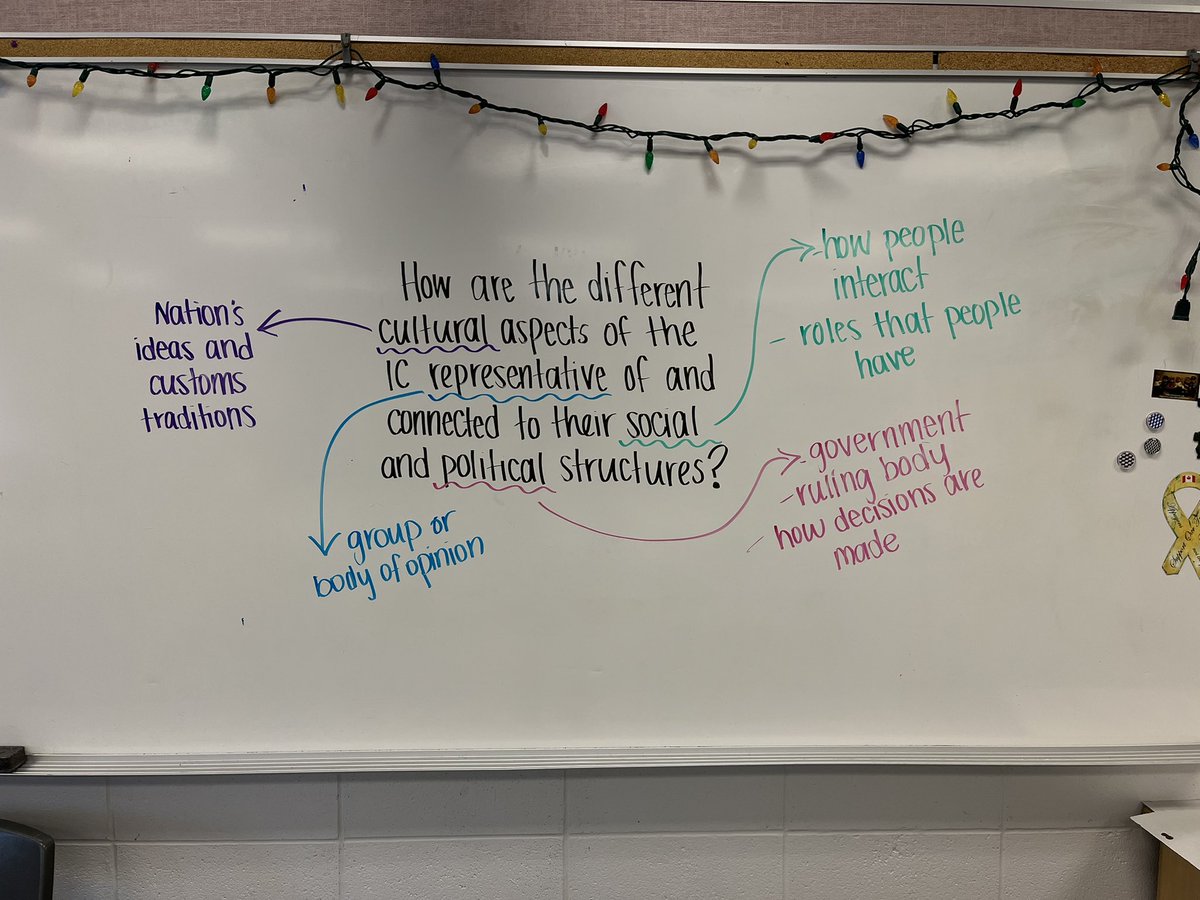 How are the different
cultural aspects of the
IC representative of and
connected to their social
and political structures?
Nation's
ideas and
customs
traditions
group or
body of opinion
-how people
interact
- roles that people
have
-government
-ruling body
- how decisions are
made